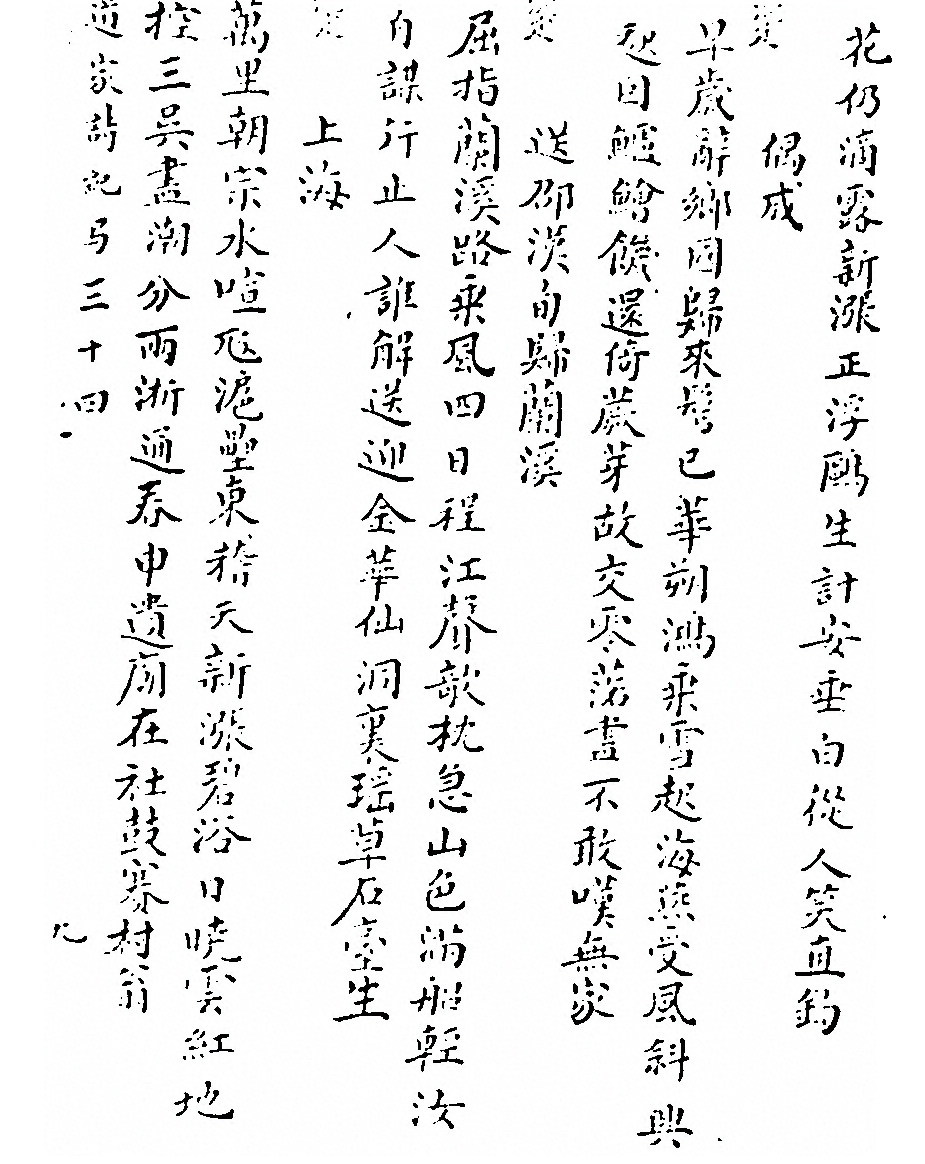 花仍滴露新漲正浮鷗生計安垂白從人笑直鈎
偶成
早歲辭鄉國歸來鬢已華朔鴻乘雪起海燕受風斜興
起因鱸鱠饑還倚蕨芽故交零落盡不敢嘆無家
送邵漢甸歸蘭溪
屈指蘭溪路乘風四日程江聲欹枕急山色滿船輕汝
自謀行止人誰解送迎金華仙洞裏瑤草石臺生
上海
萬里朝宗水喧豗滬壘東稽天新漲碧浴日曉雲紅地
控三吳盡潮分兩浙通春申遺廟在社鼓賽村翁
家詩記 三十四 九